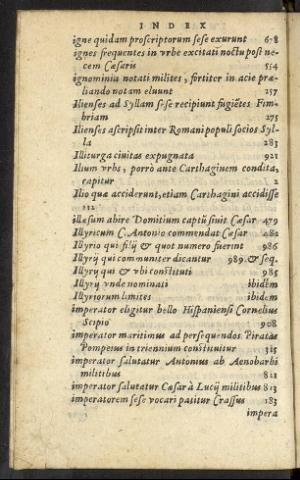 INDEX
igne quidam proscriptorum sese exurunt 678
ignes frequentes in vrbe excitati noctu post ne-
cem Cæsaris 554
ignominia notati milites, fortiter in acie præ-
liando notam eluunt 257
Ilienses ad Syllam sese recipiunt fugiētes Fim-
briam 275
Ilienses ascripsit inter Romani populi socios Syl-
la 283
Illiturgia ciuitas expugnata 921
Ilium vrbs, porrò ante Carthaginem condita,
capitur 2
Ilio quæ acciderunt, etiam Carthagini accidisse
112
illæsum abire Domitium captū siuit Cæsar 479
Illyricum C. Antonio commendat Cæsar 482
Illyrio qui filij & quot numero fuerint 986
Illyrij qui communiter dicantur 989 & seq.
Illyrij qui & vbi constituti 985
Illyrij vnde nominati ibidem
Illyriorum limites ibidem
imperator eligitur bello Hispaniensi Cornelius
Scipio 908
imperator maritimus ad persequendos Piratas
Pompeius in triennium constituitur 325
imperator salutatur Antonius ab Aenobarbi
militibus 821
imperator salutatur Cæsar à Lucij militibus 813
imperatorem sese vocari patitur Crassus 183
impera